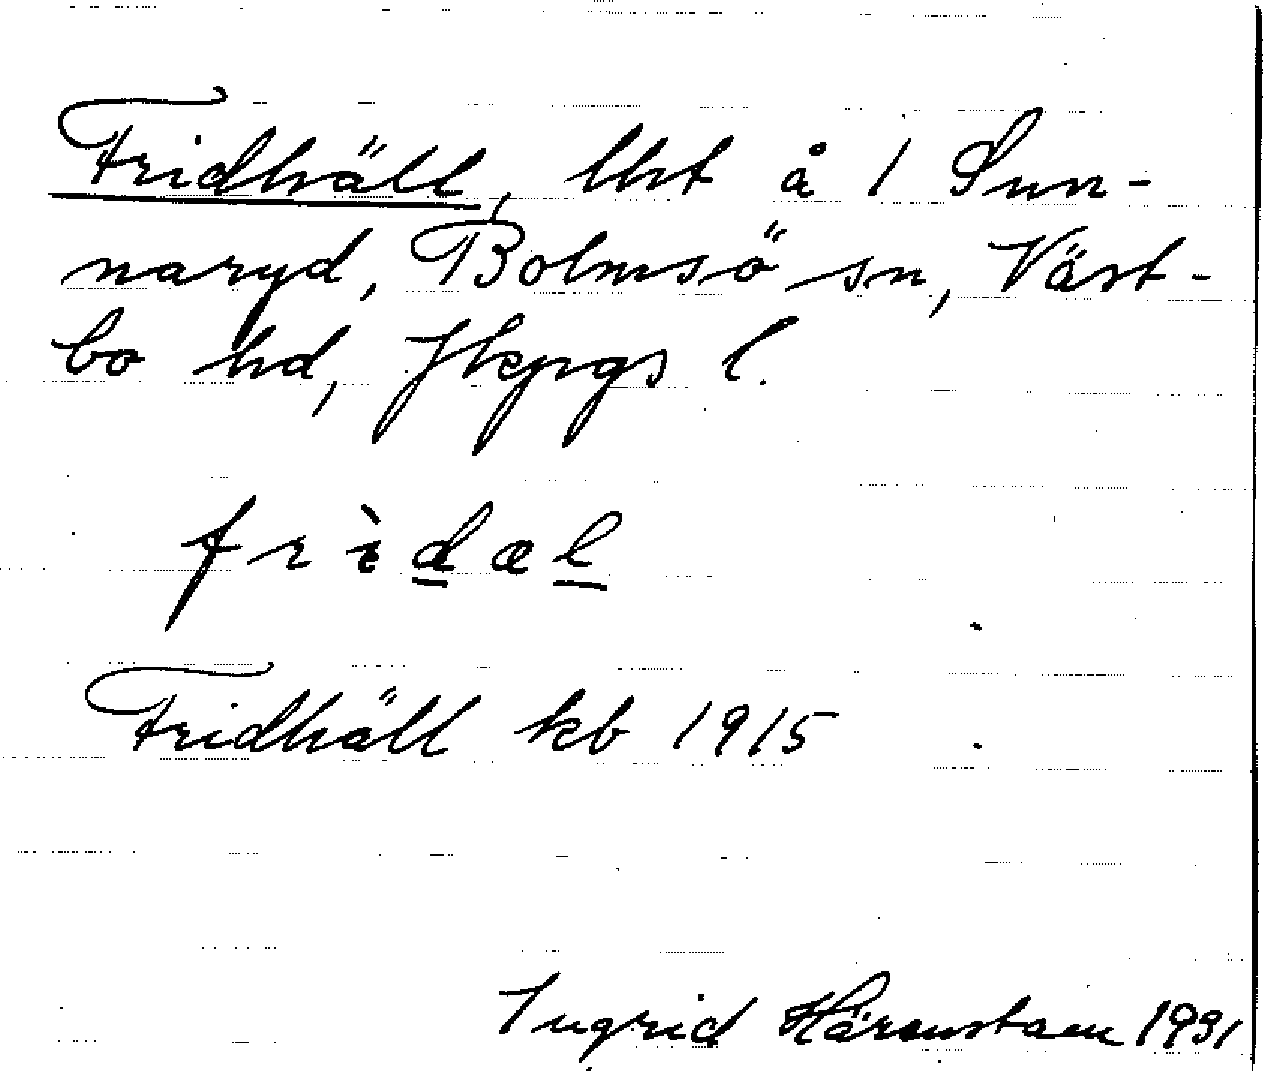 Fridhäll, lht å 1 Sun-
naryd, Bolmsö sn, Väst-
bo hd, Jkpgs l.
frìdæl
Fridhäll kb 1915
Ingrid 1931